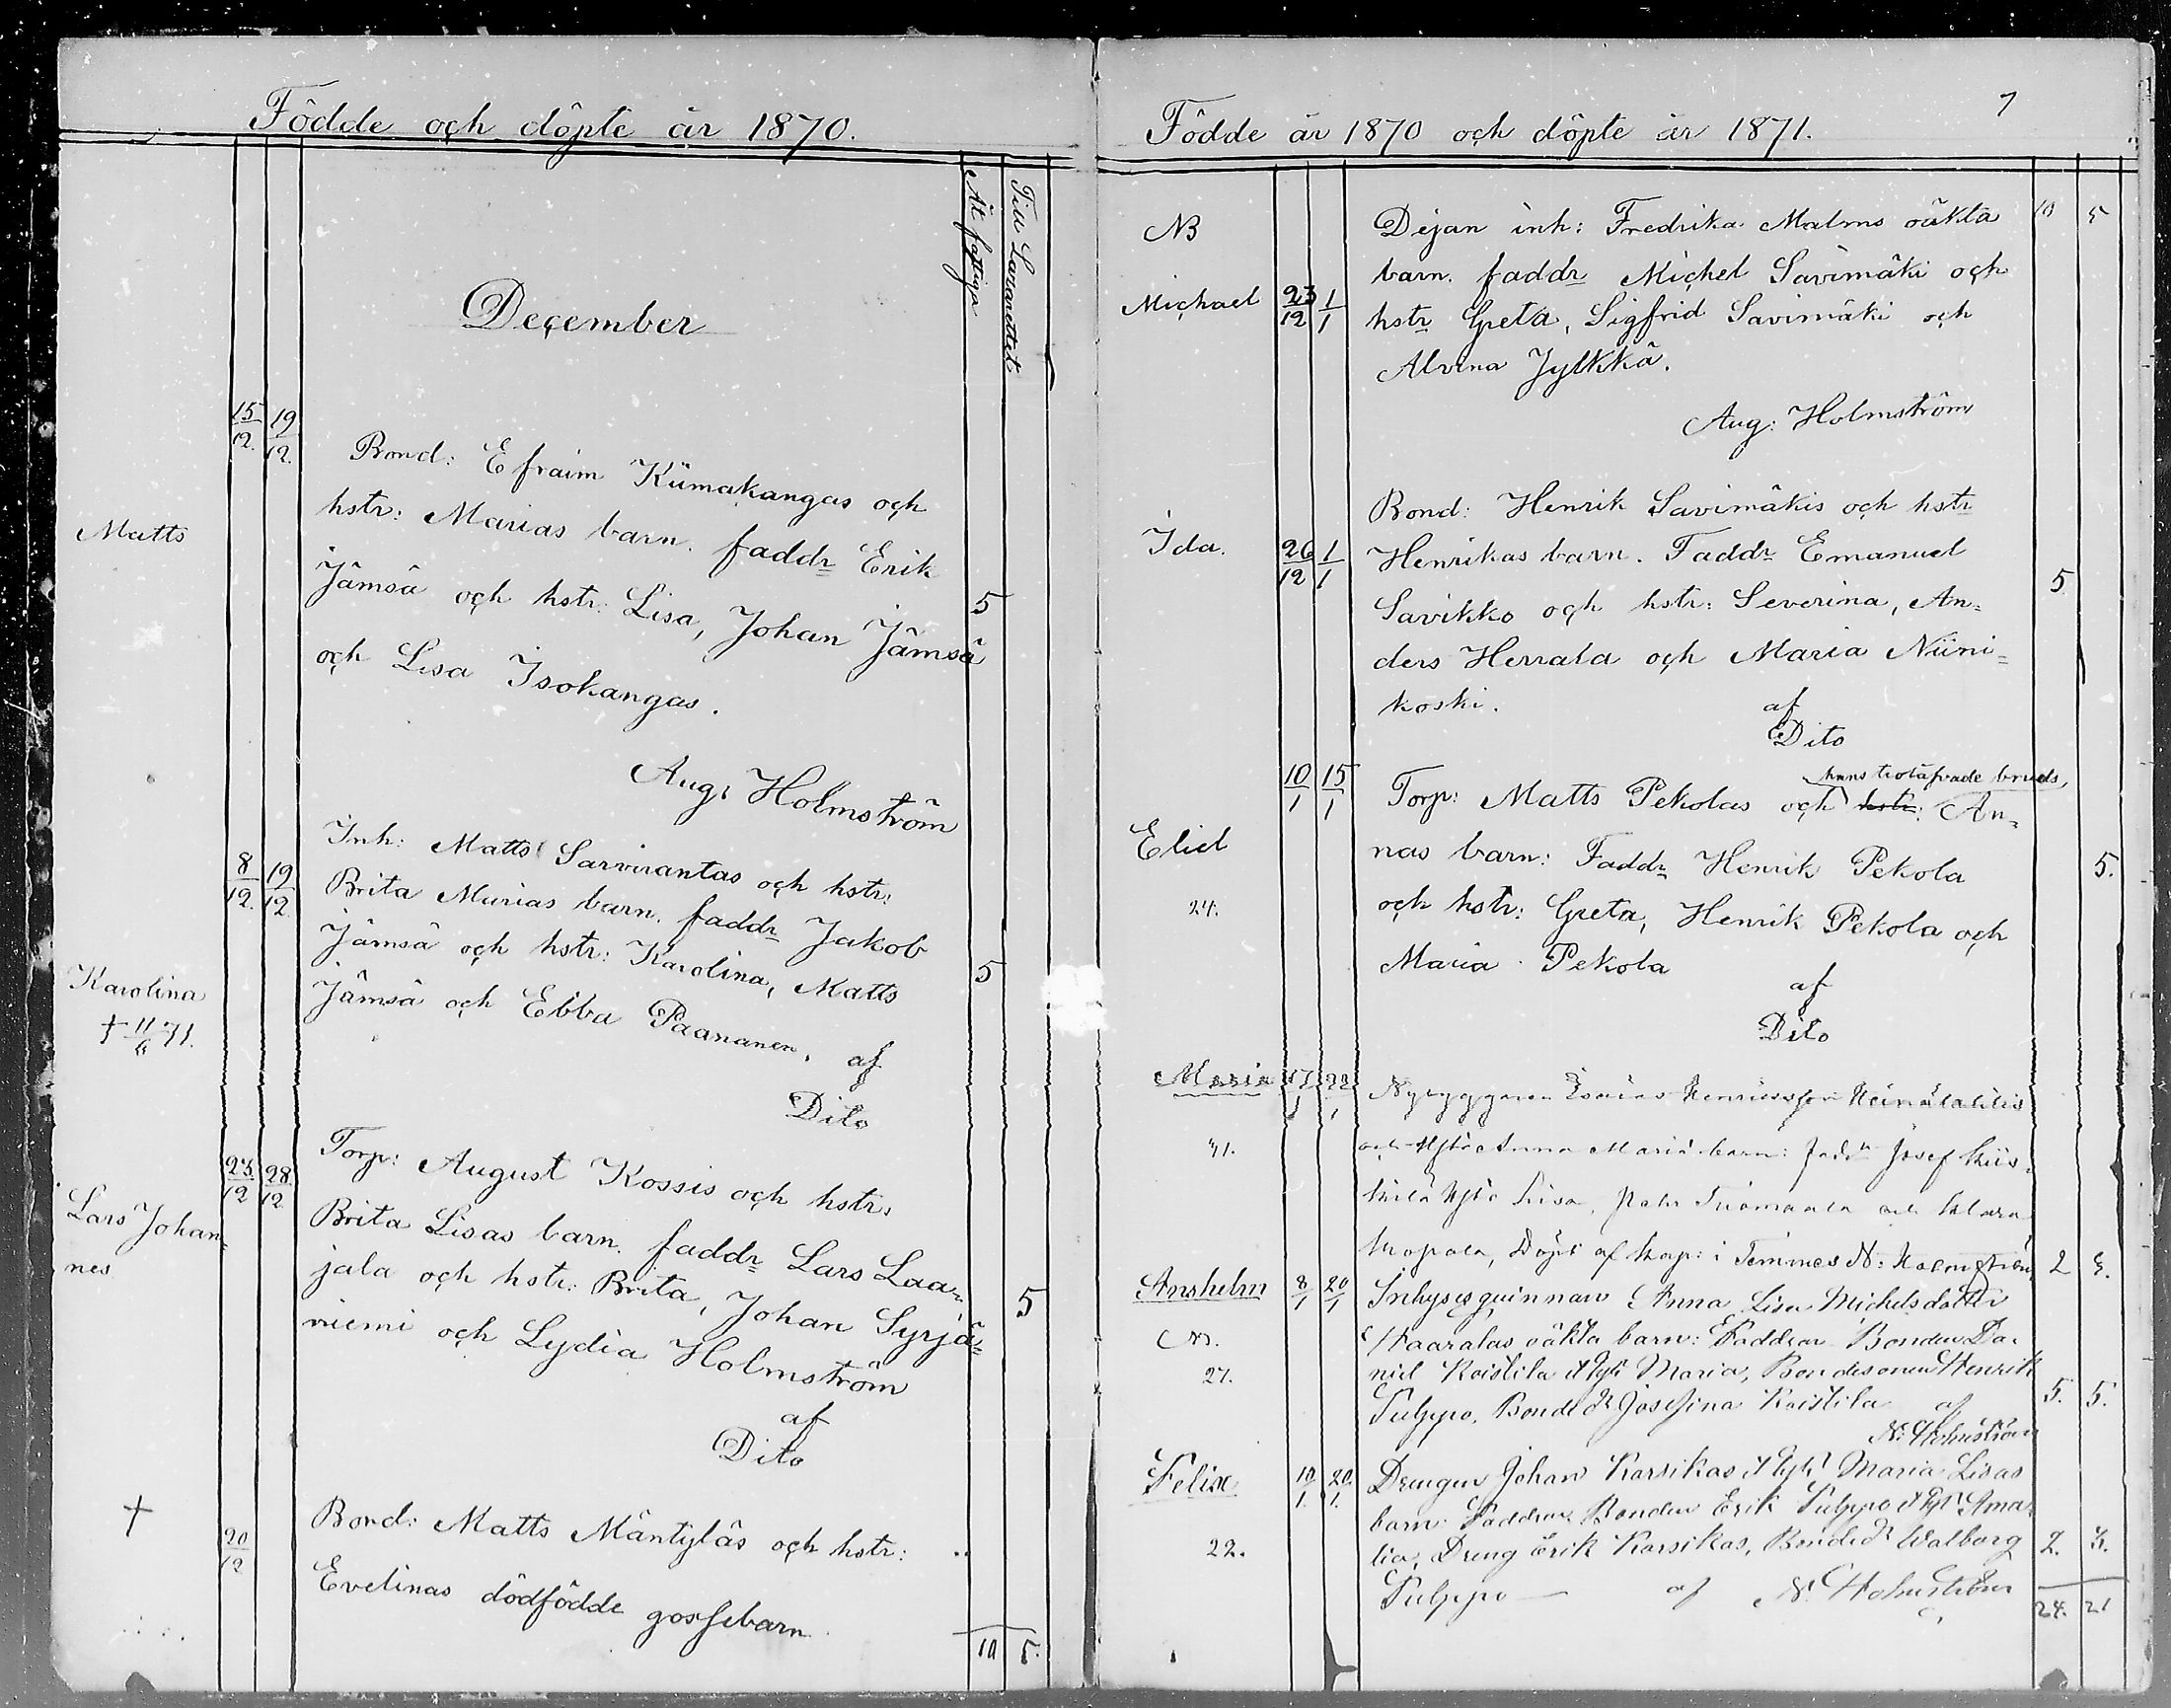 Födde och döpte år 1870.
Åt fattiga
Till Lazarettet
December
15/12. 19/12.
Matts
Bond: Efraim Kiimakangas och
hstr: Marias barn. faddr Erik
Jämsä och hstr: Lisa, Johan Jämsä
och Lisa Isokangas.
5
Aug: Holmström
8/12. 19/12
Karolina
† 11/6 71.
Inh: Matts Sarvirantas och hstr:
Brita Marias barn. faddr Jakob
Jämsä och hstr: Karolina, Matts
Jämsä och Ebba Paananen. af
5
Dito
23/12 28/12
Lars Johan-
nes
Torp: August Kossis och hstr:
Brita Lisas barn. faddr Lars Laa-
jala och hstr: Brita, Johan Syrjä-
niemi och Lydia Holmström
5
af
Dito
†
20/12
Bond: Matts Mäntyläs och hstr:
Evelinas dödfödde gossebarn
10 5.
7
Födde år 1870 och döpte år 1871.
NB
Michael 23/12 1/1
Dejan inh: Fredrika Malms oäkta 10 5
barn. faddr Michel Savimäki och
hstr Greta, Sigfrid Savimäki och
Alvina Jylkkä.
Aug: Holmström
Ida. 26/12 1/1
Bond: Henrik Savimäkis och hstr
Henrikas barn. Faddr Emanuel
Savikko och hstr: Severina, An- 5
ders Herrala och Maria Niini-
koski. af
Dito
10/1 15/1
Elid
24.
hans trolofvade bruds,
Torp: Matts Pekolas och hstr: An-
nas barn: Faddr Henrik Pekola 5.
och hstr: Greta, Henrik Pekola och
Maria Pekola
af
Dito
Maria 17/1 22/1
41.
Nybyggaren Esaias Henriksson
och Hstr Anna Marias barn: Faddr Josef
Hstr Lisa, Tuomaala och Klara
Döpt af Kap: i Temmes N: Holmström 2
Anshelm 8/1 20/1
NB.
27.
Inhysesqvinnan Anna Lisa Michelsdotter
Haaralas oäkta barn: Faddrar Bonden Da-
niel Koistila Hstr Maria, Bondesonen Henrik
Pulppo, Bonded:r Josefina Koistila af 5. 5.
N: Holmström
Felix 10/1. 20/1.
22.
Drengen Johan Karsikas Hstr Maria Lisas
barn. Faddrar Bonden Erik Pulppo Hstr Ama-
lia, Dreng Erik Karsikas, Bonded:r Walborg 2.
Pulppo — af N: Holmström
24. 21